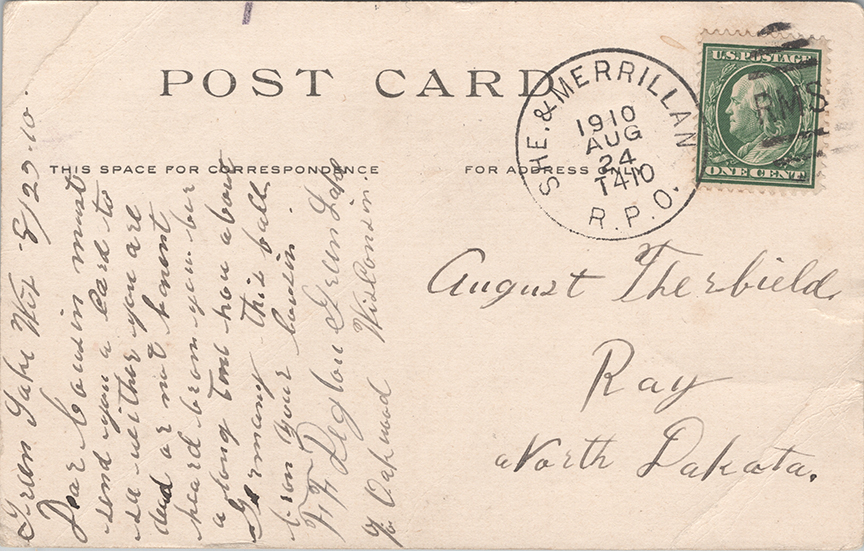 POST CARD
THIS SPACE FOR CORRESPONDENCE
FOR ADDRESS ONLY
SHE. & MERRILLAN
1910
AUG
24
T410
R.P.O.
U.S. POSTAGE
RMS
ONE CENT
August Therbield
Ray
North Dakota.
Green Lake Wis 8/23-10.
Dear Cousin must
send you a card to
se weither you are
dead or not havent
heard from you ber
a long time how about
Germany this ball
bron your Cousin.
FF Green Lake
c/o Oakwood Wisconsin